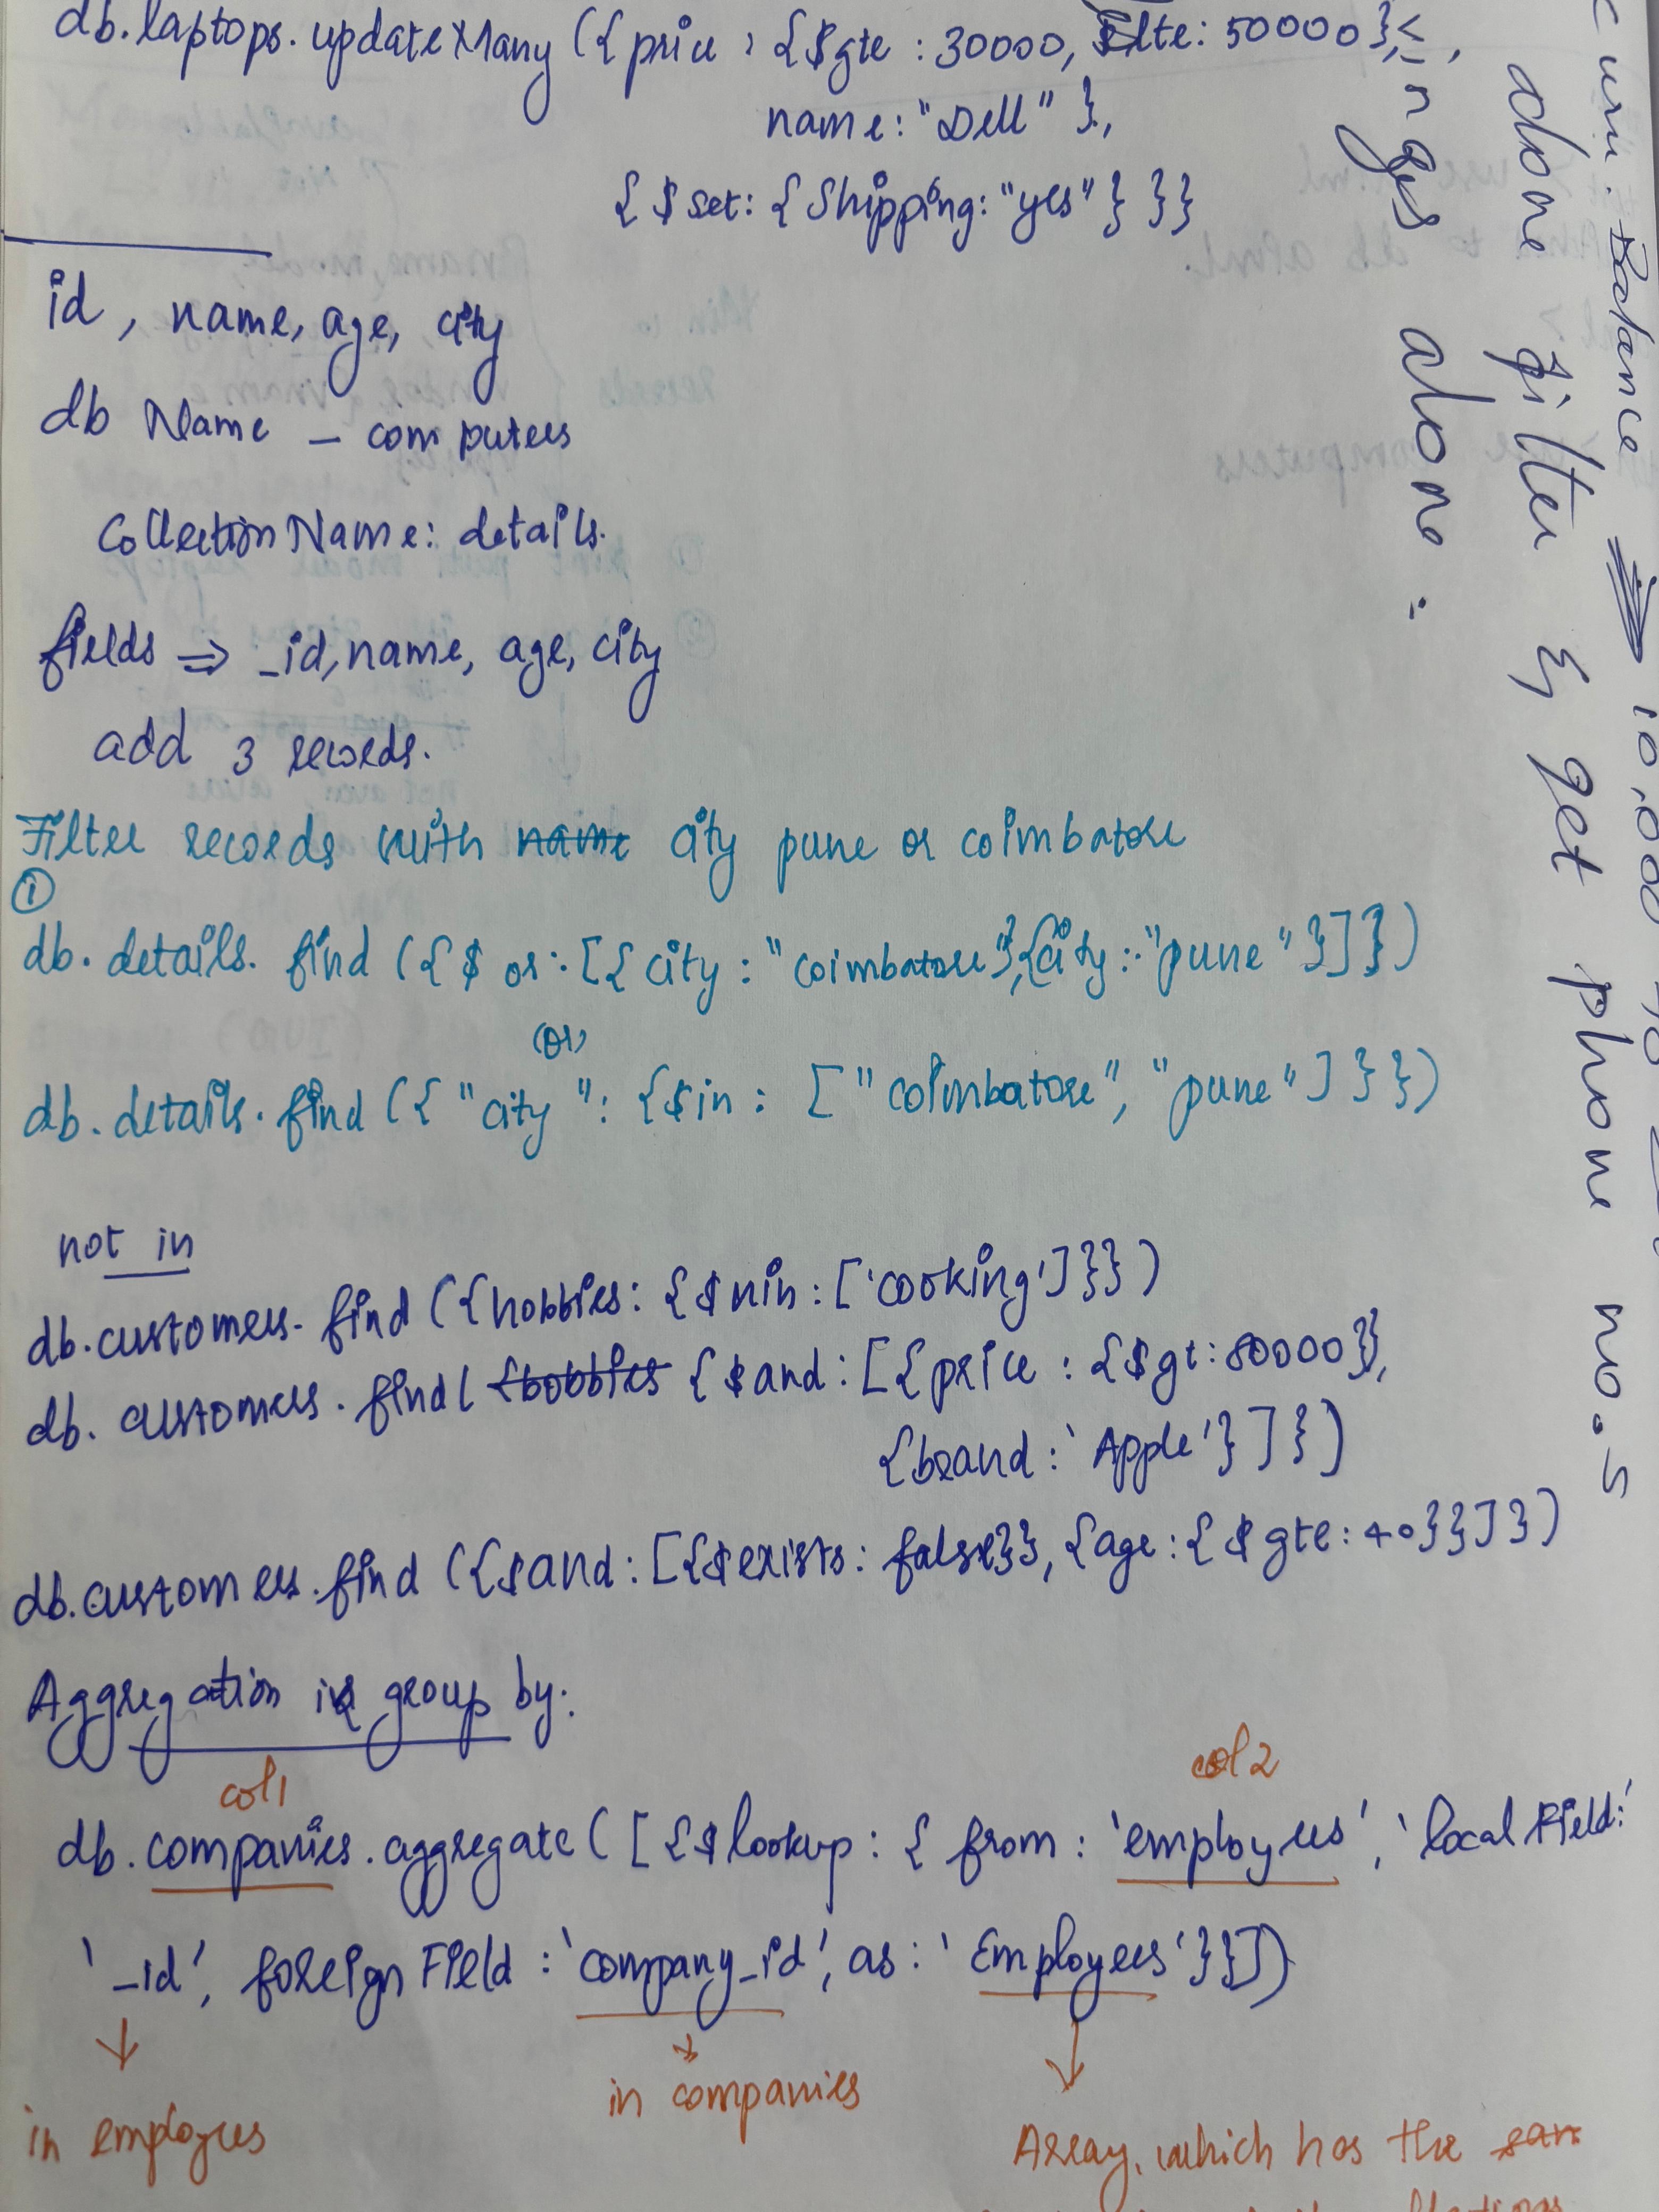 db.laptops.updateMany ({price : {$gte : 30000, $lte: 50000},
name: "Dell" },
{$set: {Shipping: "yes"} }}
id, name, age, city
db Name - computers
Collection Name: details.
fields ⇒ _id, name, age, city
add 3 records.
Filter records with name city pune or coimbatore
①
db.details.find ({$or:[{city: "coimbatore"},{city: "pune"}]})
(or)
db.details.find ({"city": {$in: ["coimbatore", "pune"]}})
not in
db.customers.find ({hobbies: {$nin: ['cooking']}})
db.customers.find( {hobbies {$and: [{price : {$gt: 80000}},
{brand: 'Apple'}]})
db.customers.find ({$and: [{$exists: false}}, {age: {$gte: 40}}]})
Aggregation in group by:
col1
col2
db.companies.aggregate ([{$lookup: { from: 'employees', 'localField:'
'_id', foreignField: 'company_id', as: 'Employees'}}])
in employees
in companies
Array, which has the sam
curr. Balance ⇒ 10,000
alone filter & get phone no.s
alone